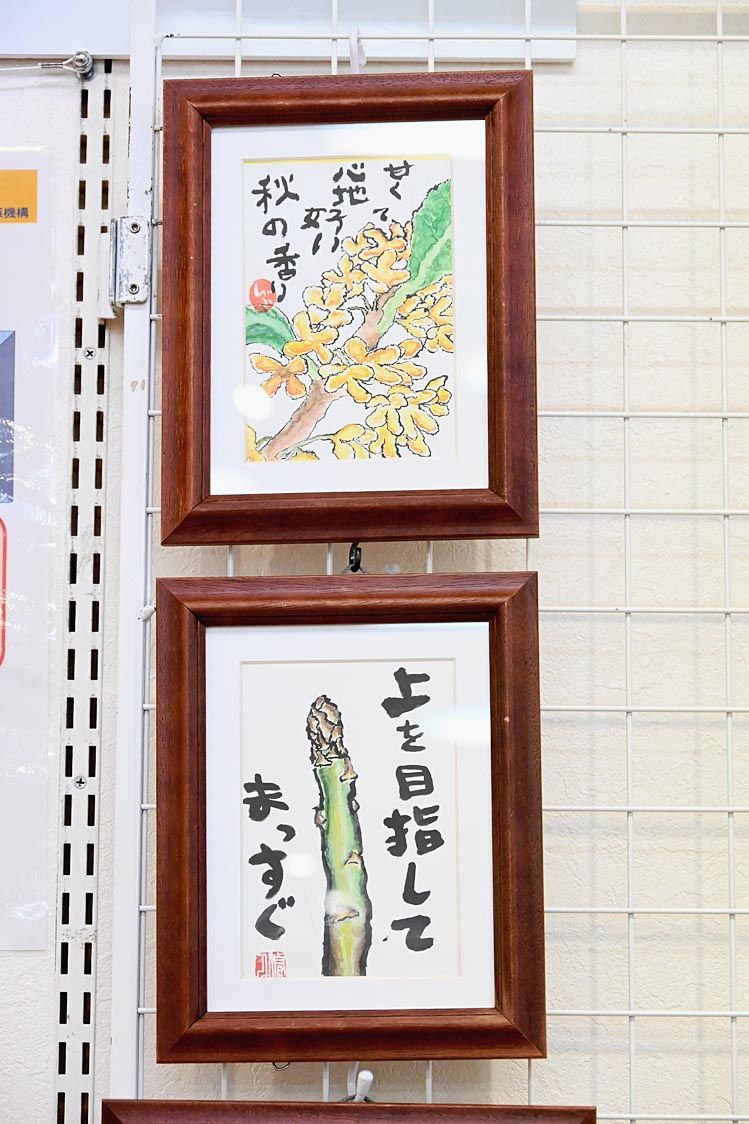 甘くて
心地好い
秋の香り
上を目指して
まっすぐ
機構